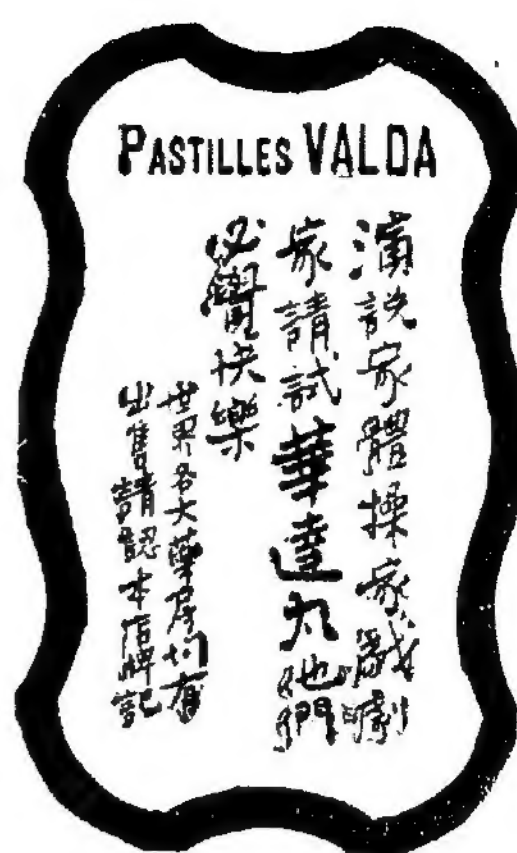 PASTILLES VALDA
演説家體操家戲劇
家請試華達丸他們
必覺快樂
世界各大藥房均有
出售請認本店牌記